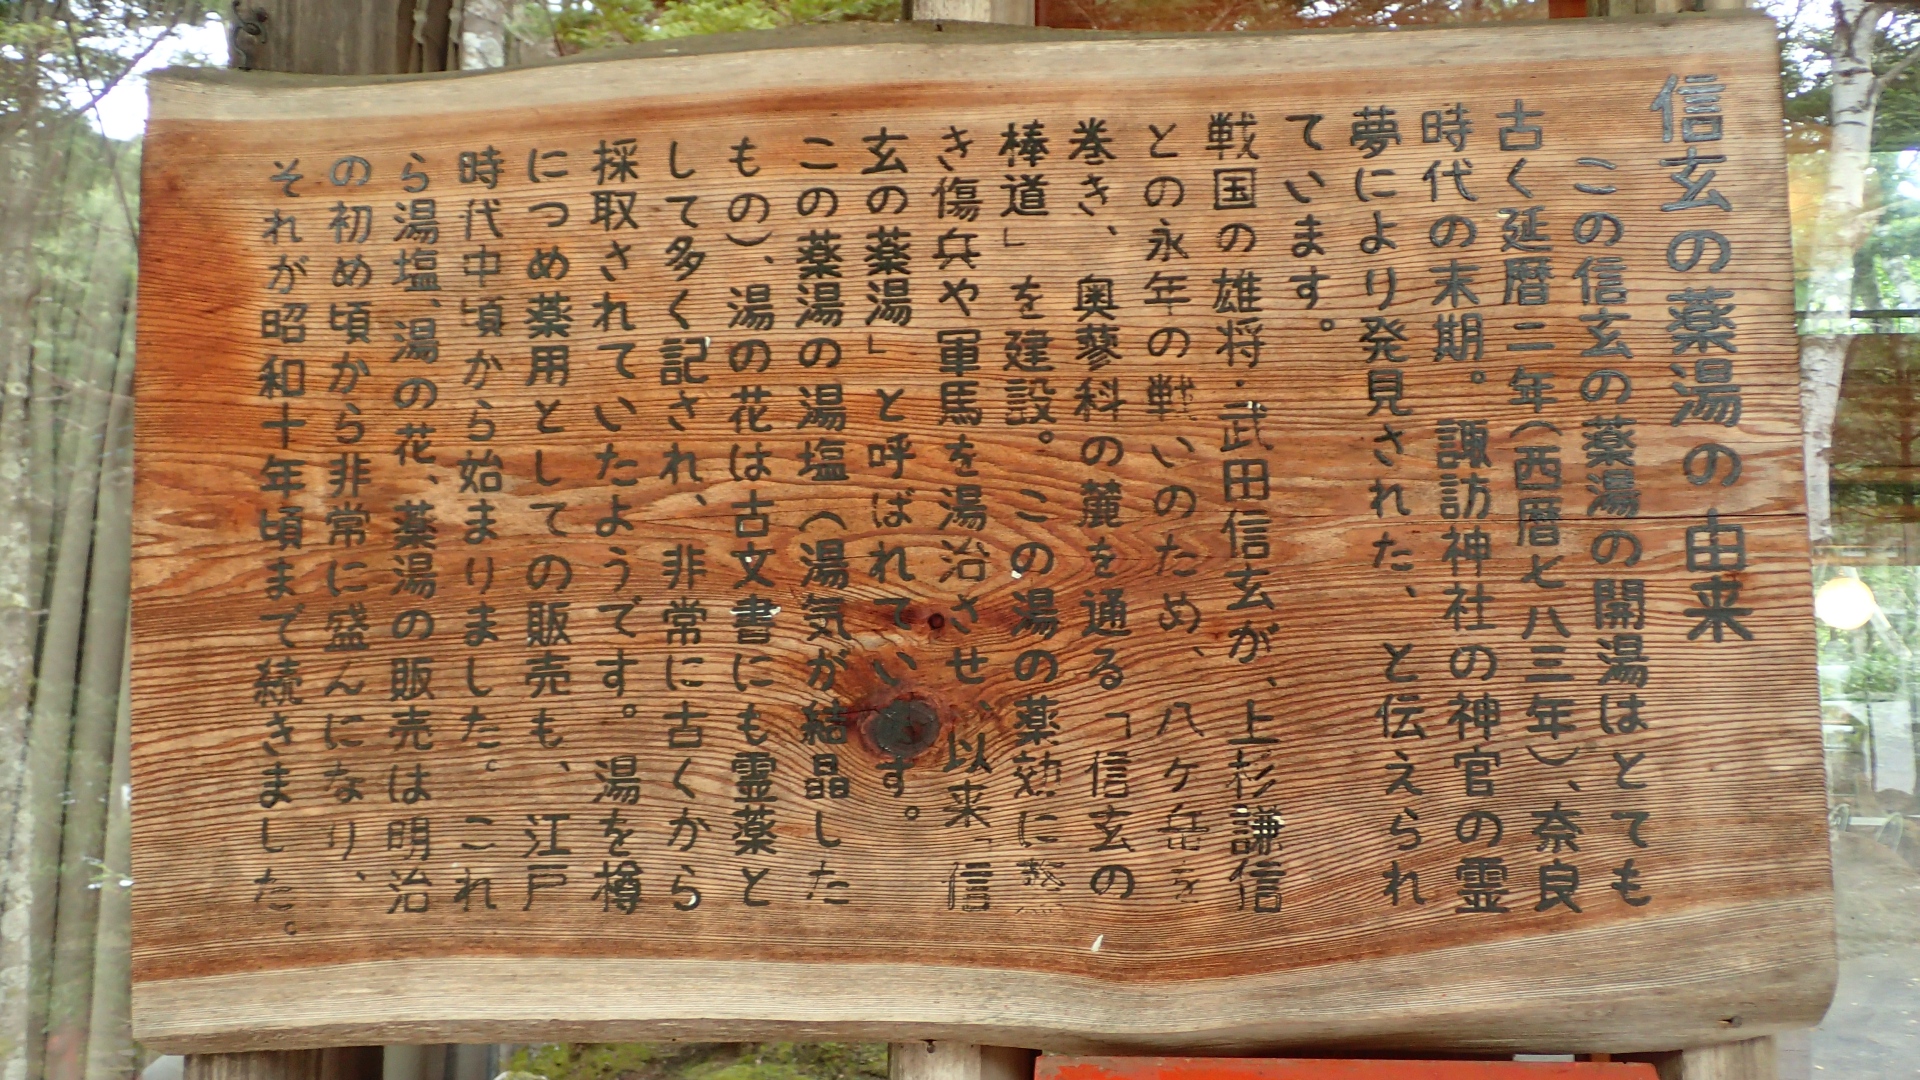 信玄の薬湯の由来
この信玄の薬湯の開湯はとても
古く延暦二年(西暦七八三年)、奈良
時代の末期。諏訪神社の神官の霊
夢により発見された、と伝えられ
ています。
戦国の雄将・武田信玄が、上杉謙信
との永年の戦いのため、八ヶ岳を
巻き、奥蓼科の麓を通る「信玄の
棒道」を建設。この湯の薬効に
き傷兵や軍馬を湯治させ、以来「信
玄の薬湯」と呼ばれています。
この薬湯の湯塩(湯気が結晶した
もの)、湯の花は古文書にも霊薬と
して多く記され、非常に古くから
採取されていたようです。湯を樽
につめ薬用としての販売も、江戸
時代中頃から始まりました。これ
ら湯塩、湯の花、薬湯の販売は明治
の初め頃から非常に盛んになり、
それが昭和十年頃まで続きました。